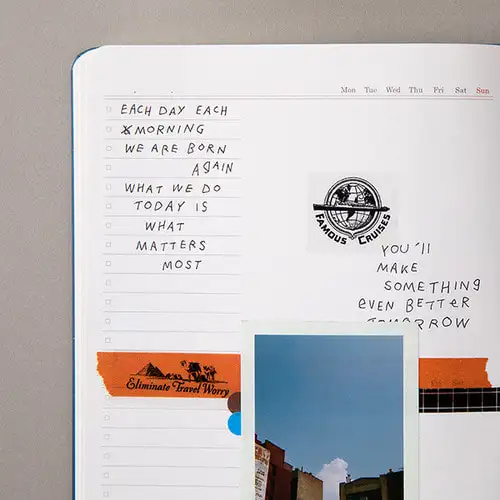 Mon Tue Wed Thu Fri Sat Sun
EACH DAY EACH
MORNING
WE ARE BORN
AGAIN
WHAT WE DO
TODAY IS
WHAT
MATTERS
MOST
FAMOUS CRUISES
YOU'll
MAKE
SOMETHING
EVEN BETTER
TOMORROW
Eliminate Travel Worry
Fri Sat